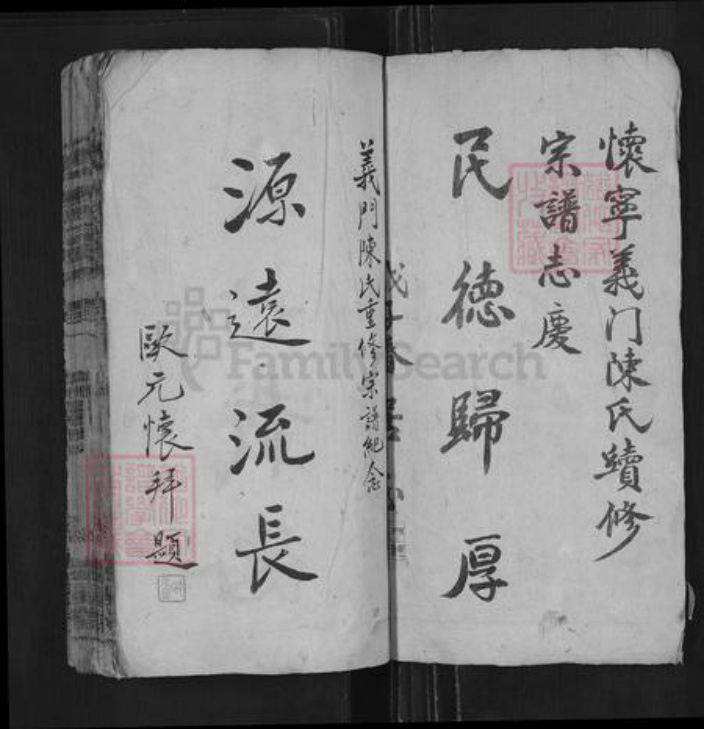 懷寧義门陳氏續修
宗譜志慶
民德歸厚
義門陳氏重修宗譜紀念
源遠流長
歐元懷拜題
FamilySearch